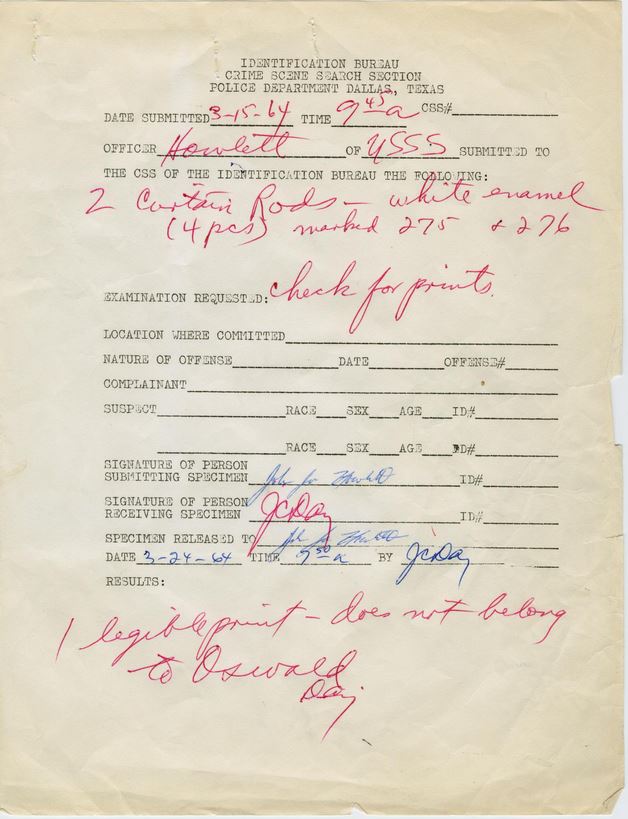 IDENTIFICATION BUREAU
CRIME SCENE SEARCH SECTION
POLICE DEPARTMENT DALLAS, TEXAS
DATE SUBMITTED 3-15-64 TIME 9 45 a CSS#
OFFICER Howlett OF USSS SUBMITTED TO
THE CSS OF THE IDENTIFICATION BUREAU THE FOLLOWING:
2 Curtain Rods - white enamel
(4 pcs) marked 275 & 276
EXAMINATION REQUESTED: check for prints.
LOCATION WHERE COMMITTED
NATURE OF OFFENSE DATE OFFENSE#
COMPLAINANT
SUSPECT RACE SEX AGE ID#
RACE SEX AGE ID#
SIGNATURE OF PERSON
SUBMITTING SPECIMEN John Joe Howlett ID#
SIGNATURE OF PERSON
RECEIVING SPECIMEN JCDay ID#
SPECIMEN RELEASED TO John Joe Howlett
DATE 3-24-64 TIME 7 50 a BY JCDay
RESULTS:
1 legible print - does not belong
to Oswald
Day